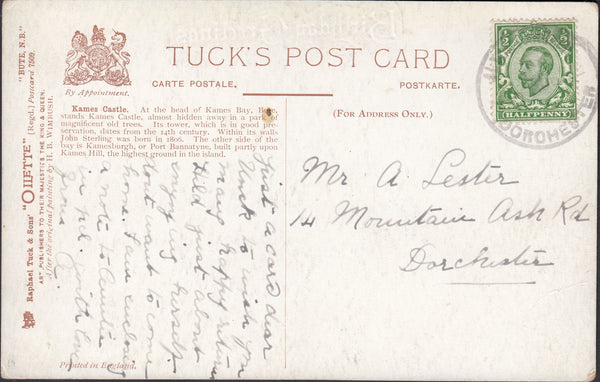 TUCK'S POST CARD
By Appointment.
CARTE POSTALE.
POSTKARTE.
(FOR ADDRESS ONLY.)
Kames Castle. At the head of Kames Bay,
stands Kames Castle, almost hidden away in a par
magnificent old trees. Its tower, which is in good pre-
servation, dates from the 14th century. Within its walls
John Sterling was born in 1806. The other side of the
bay is Kamesburgh, or Port Bannatyne, built partly upon
Kames Hill, the highest ground in the island.
Raphael Tuck & Sons' "OILETTE" (Regd.) Postcard 7509. "BUTE, N.B."
ART PUBLISHERS TO THEIR MAJESTIES THE KING & QUEEN.
After the original painting by H. B. WIMBUSH.
Printed in England.
HALFPENNY
DORCHESTER
Mr A Lester
14 Mountain Ash Rd
Dorchester
Just a card dear
to wish you
many happy returns
Hild just about
enjoying herself
dont want to come
home. I am enclosing
a note to Auntie
in pcl. with love
from